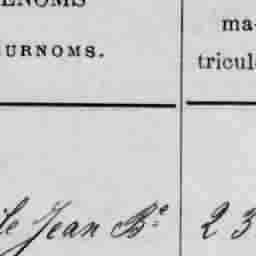 ÉNOMS
URNOMS.
ma-
tricul
le Jean Bte
23